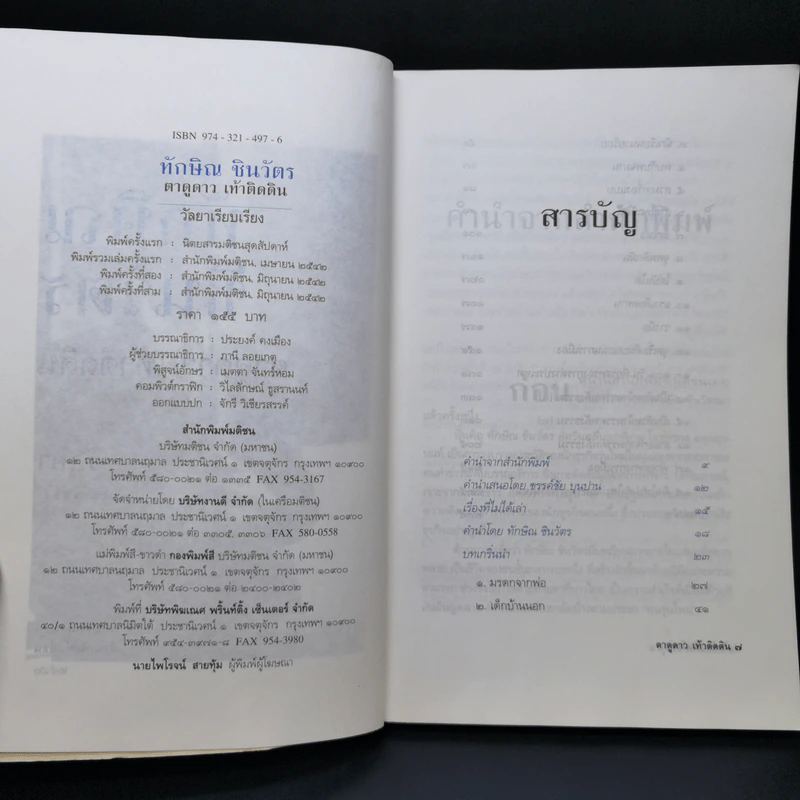 ISBN 974 - 321 - 497 - 6
ทักษิณ ชินวัตร
ตาดูดาว เท้าติดดิน
วัลยาเรียบเรียง
พิมพ์ครั้งแรก : นิตยสารมติชนสุดสัปดาห์
พิมพ์รวมเล่มครั้งแรก : สำนักพิมพ์มติชน, เมษายน ๒๕๔๒
พิมพ์ครั้งที่สอง : สำนักพิมพ์มติชน, มิถุนายน ๒๕๔๒
พิมพ์ครั้งที่สาม : สำนักพิมพ์มติชน, มิถุนายน ๒๕๔๒
ราคา ๑๕๕ บาท
บรรณาธิการ : ประยงค์ คงเมือง
ผู้ช่วยบรรณาธิการ : ภานี ลอยเกตุ
พิสูจน์อักษร : เมตตา จันทร์หอม
คอมพิวต์กราฟิก : วิไลลักษณ์ ชูสรานนท์
ออกแบบปก : จักรี วิเชียรสรรค์
สำนักพิมพ์มติชน
บริษัทมติชน จำกัด (มหาชน)
๑๒ ถนนเทศบาลนฤมาล ประชานิเวศน์ ๑ เขตจตุจักร กรุงเทพฯ ๑๐๙๐๐
โทรศัพท์ ๕๘๐-๐๐๒๑ ต่อ ๑๒๓๕ FAX 954-3167
จัดจำหน่ายโดย บริษัทงานดี จำกัด (ในเครือมติชน)
๑๒ ถนนเทศบาลนฤมาล ประชานิเวศน์ ๑ เขตจตุจักร กรุงเทพฯ ๑๐๙๐๐
โทรศัพท์ ๕๘๐-๐๐๒๑ ต่อ ๓๓๐๕, ๓๓๐๖ FAX 580-0558
แม่พิมพ์สี-ขาวดำ กองพิมพ์สี บริษัทมติชน จำกัด (มหาชน)
๑๒ ถนนเทศบาลนฤมาล ประชานิเวศน์ ๑ เขตจตุจักร กรุงเทพฯ ๑๐๙๐๐
โทรศัพท์ ๕๘๐-๐๐๒๑ ต่อ ๒๔๐๐-๒๔๐๒
พิมพ์ที่ บริษัทพิฆเณศ พริ้นท์ติ้ง เซ็นเตอร์ จำกัด
๔๐/๑ ถนนเทศบาลนิมิตใต้ ประชานิเวศน์ ๑ เขตจตุจักร กรุงเทพฯ ๑๐๙๐๐
โทรศัพท์ ๙๕๔-๓๙๗๑-๘ FAX 954-3980
นายไพโรจน์ สายทุ้ม ผู้พิมพ์ผู้โฆษณา
สารบัญ
คำนำจากสำนักพิมพ์ ๙
คำนำเสนอโดย ขรรค์ชัย บุนปาน ๑๒
เรื่องที่ไม่ได้เล่า ๑๕
คำนำโดย ทักษิณ ชินวัตร ๑๘
บทเกริ่นนำ ๒๓
๑. มรดกจากพ่อ ๒๗
๒. เด็กบ้านนอก ๔๑
ตาดูดาว เท้าติดดิน ๗